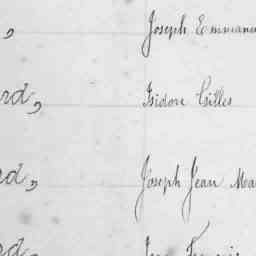 , Joseph Emmanu
rd, Isidore Gilles
rd, Joseph Jean Ma
rd, Jean François